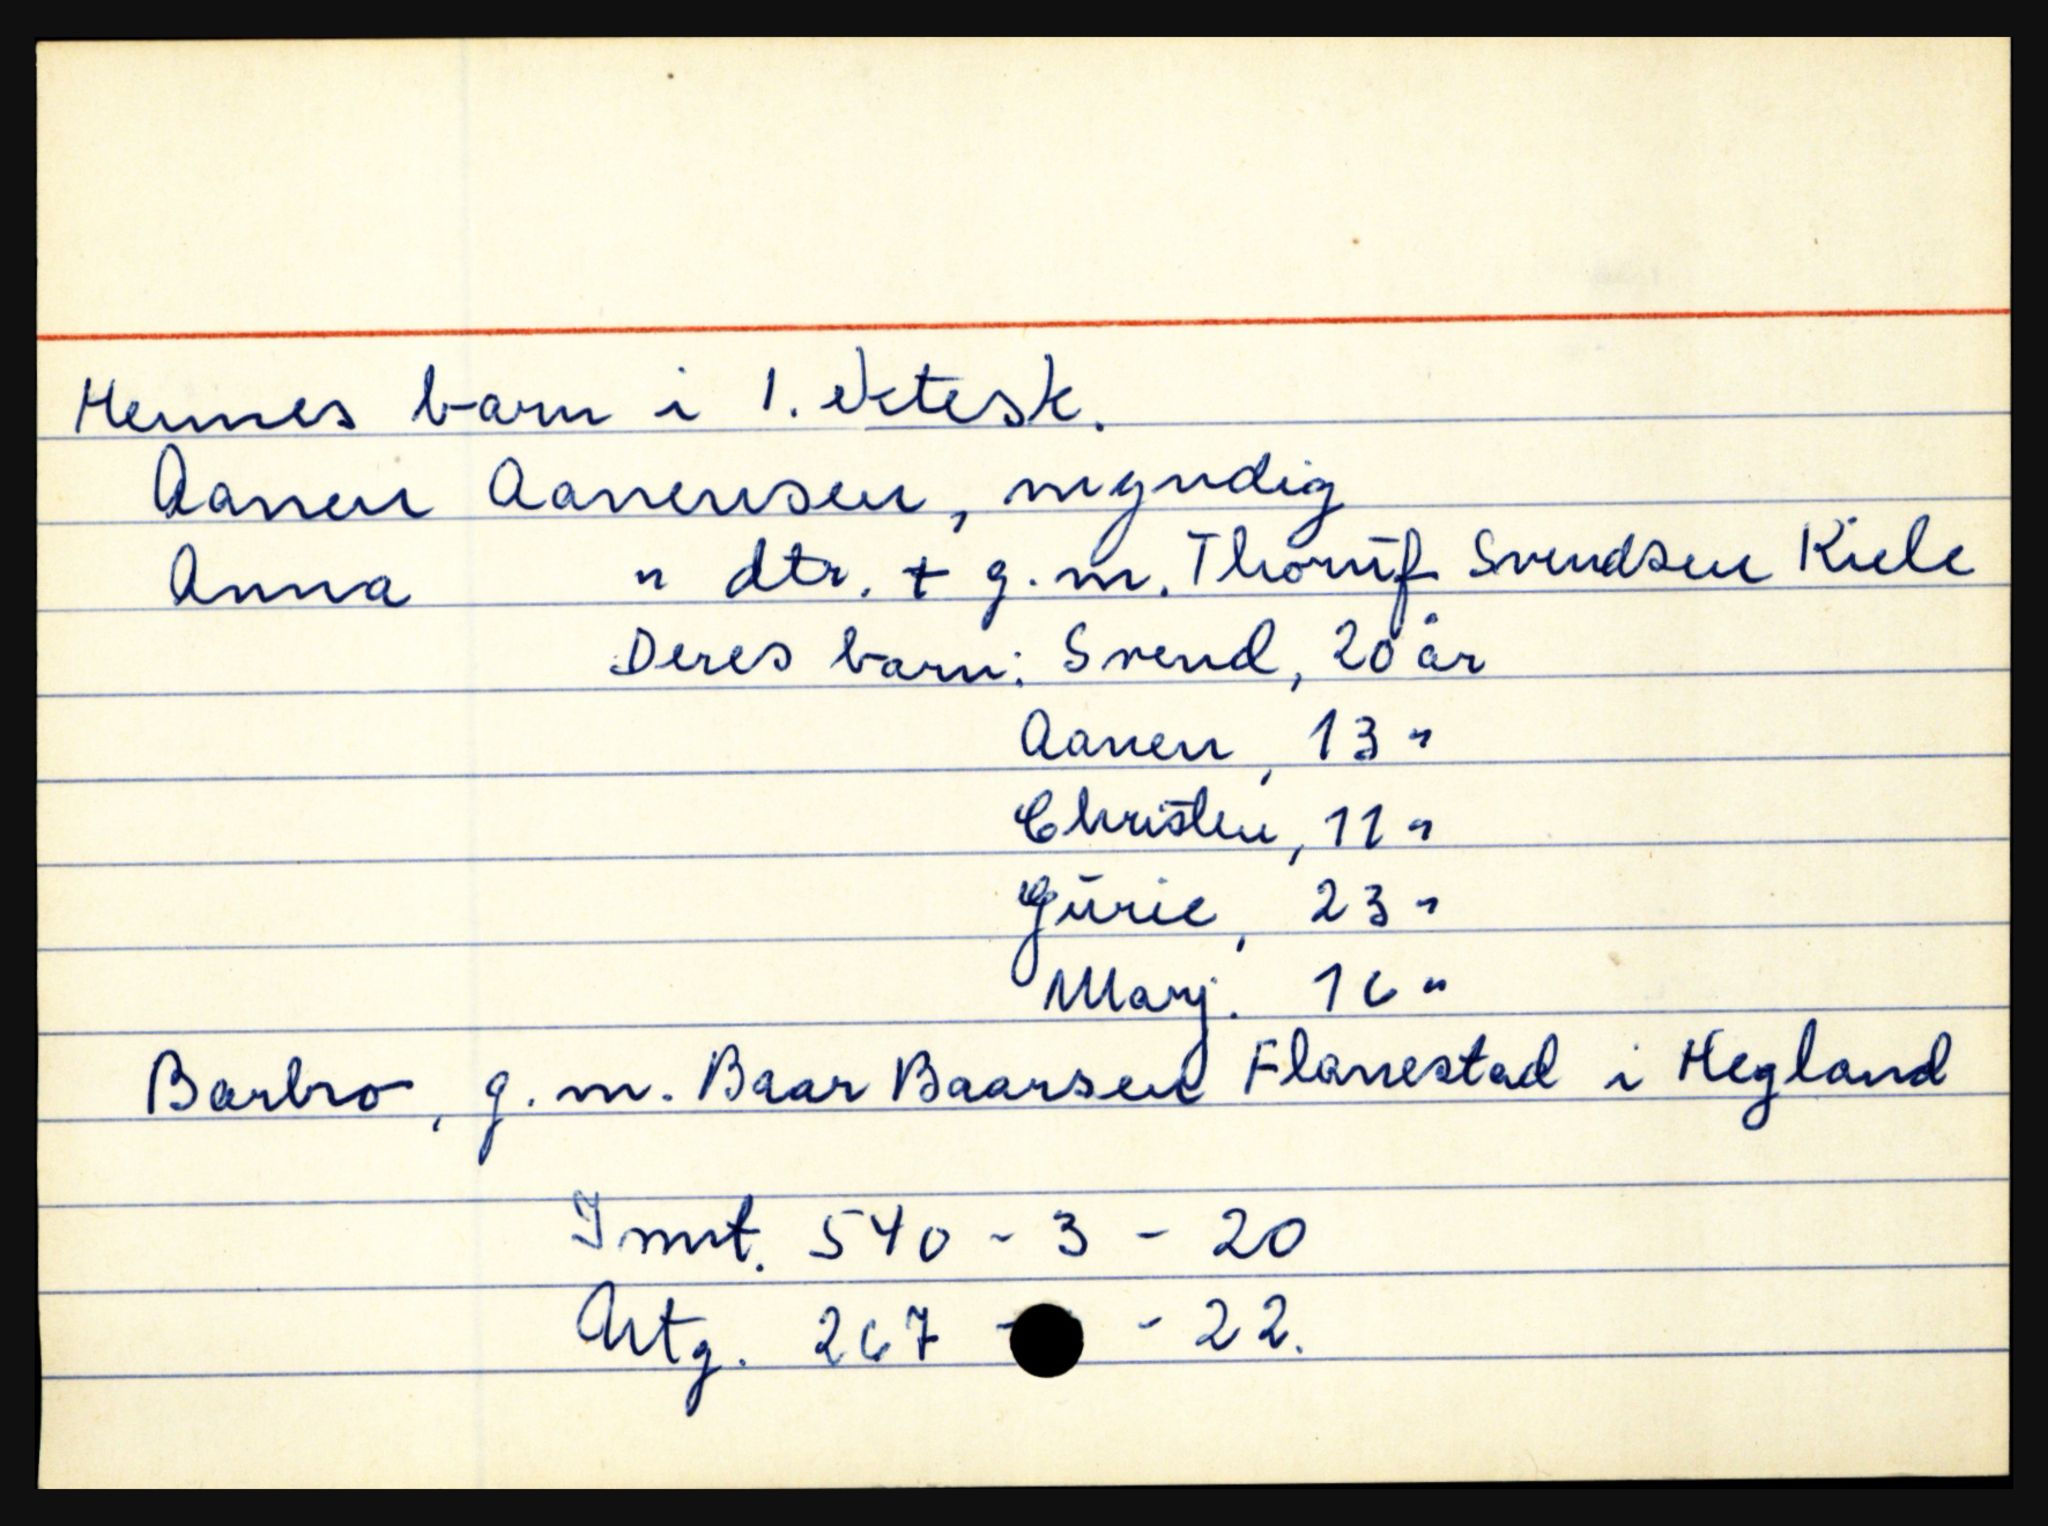 Hennes barn i 1. ektesk.
Aanen Aanensen, myndig
Anna " dtr. + g. m. Thorūf Svendsen Kiele
Deres barn: Svend, 20 år
Aanen, 13 "
Christen, 11 "
Gūrie, 23 "
Marj. 16 "
Barbro, g. m. Baar Baarsen Flanestad i Hegland
Innt. 540 - 3 - 20
Utg. 267 - - 22.